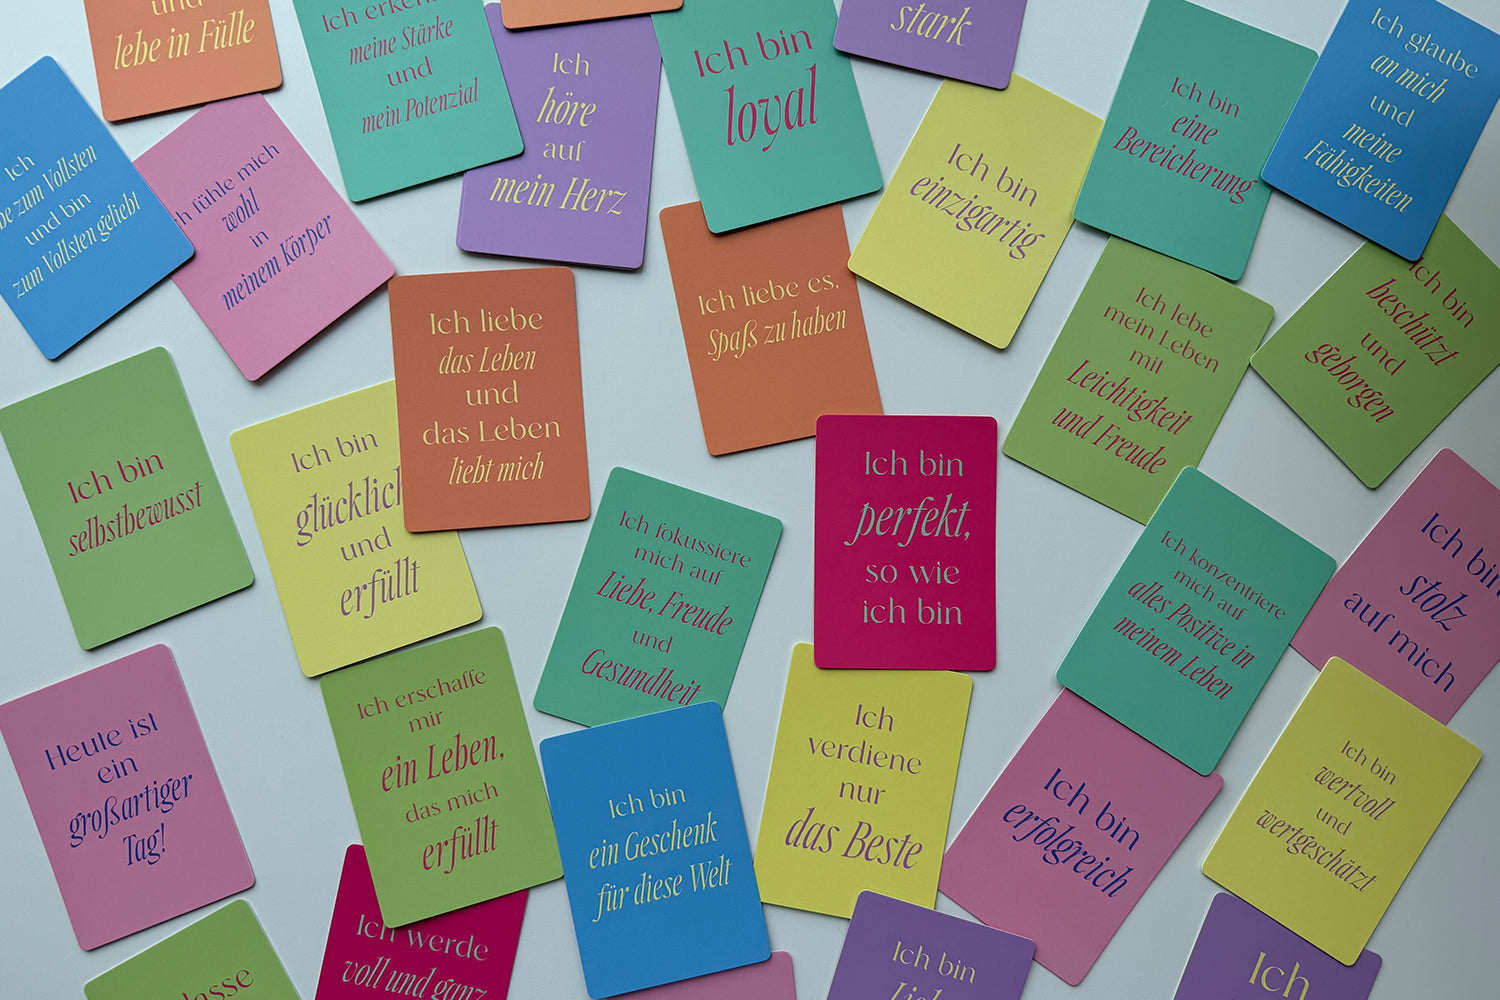 und
lebe in Fülle
Ich erkenne
meine Stärke
und
mein Potenzial
Ich
höre
auf
mein Herz
Ich bin
loyal
stark
Ich bin
einzigartig
Ich bin
eine
Bereicherung
Ich glaube
an mich
und
meine
Fähigkeiten
Ich
zum Vollsten
und bin
zum Vollsten geliebt
fühle mich
wohl
in
meinem Körper
Ich liebe
das Leben
und
das Leben
liebt mich
Ich liebe es,
Spaß zu haben
Ich lebe
mein Leben
mit
Leichtigkeit
und Freude
Ich bin
beschützt
und
geborgen
Ich bin
selbstbewusst
Ich bin
glücklich
und
erfüllt
Ich fokussiere
mich auf
Liebe, Freude
und
Gesundheit
Ich bin
perfekt,
so wie
ich bin
Ich konzentriere
mich auf
alles Positive in
meinem Leben
Ich bin
stolz
auf mich
Heute ist
ein
großartiger
Tag!
Ich erschaffe
mir
ein Leben,
das mich
erfüllt
Ich bin
ein Geschenk
für diese Welt
Ich
verdiene
nur
das Beste
Ich bin
erfolgreich
Ich bin
wertvoll
und
wertgeschätzt
Ich werde
voll und ganz
Ich bin
Ich